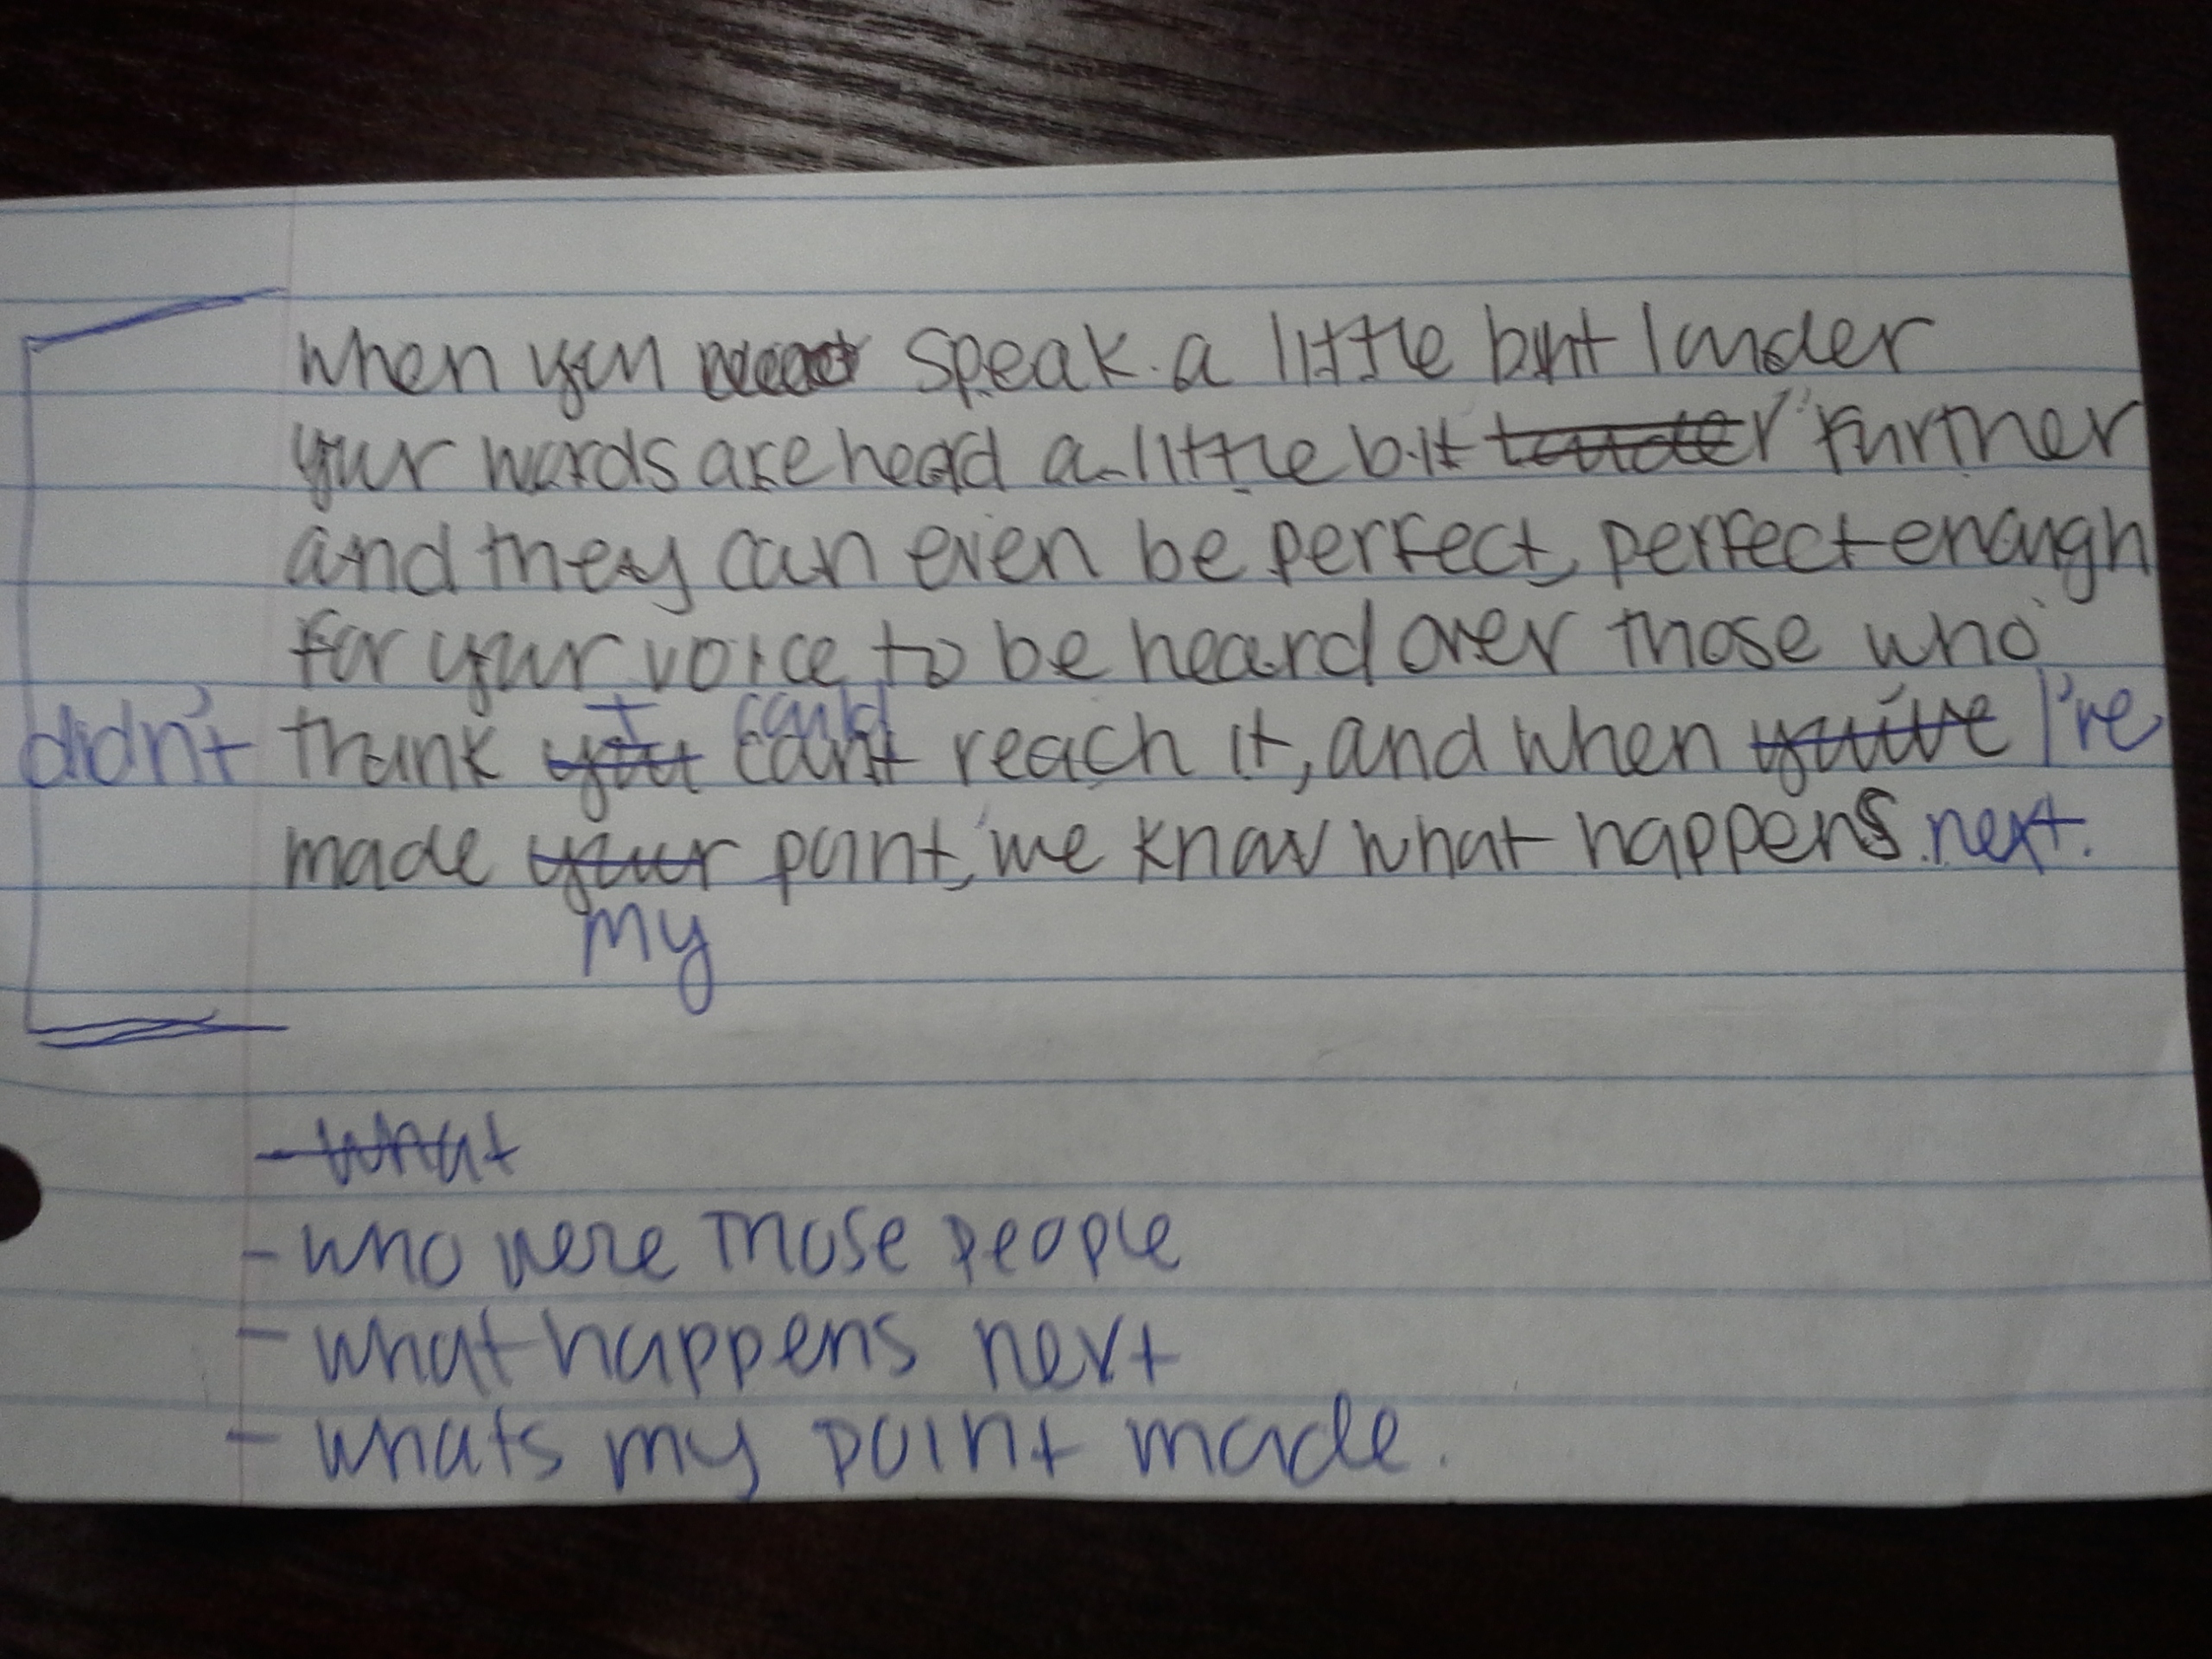 when you speak a little bit louder
your words are heard a little bit louder further
and they can even be perfect, perfect enough
for your voice to be heard over those who
I could
didn't think you can't reach it, and when you've I've
made your point, we know what happens next.
my
- what
- who were those people
- what happens next
- whats my point made.